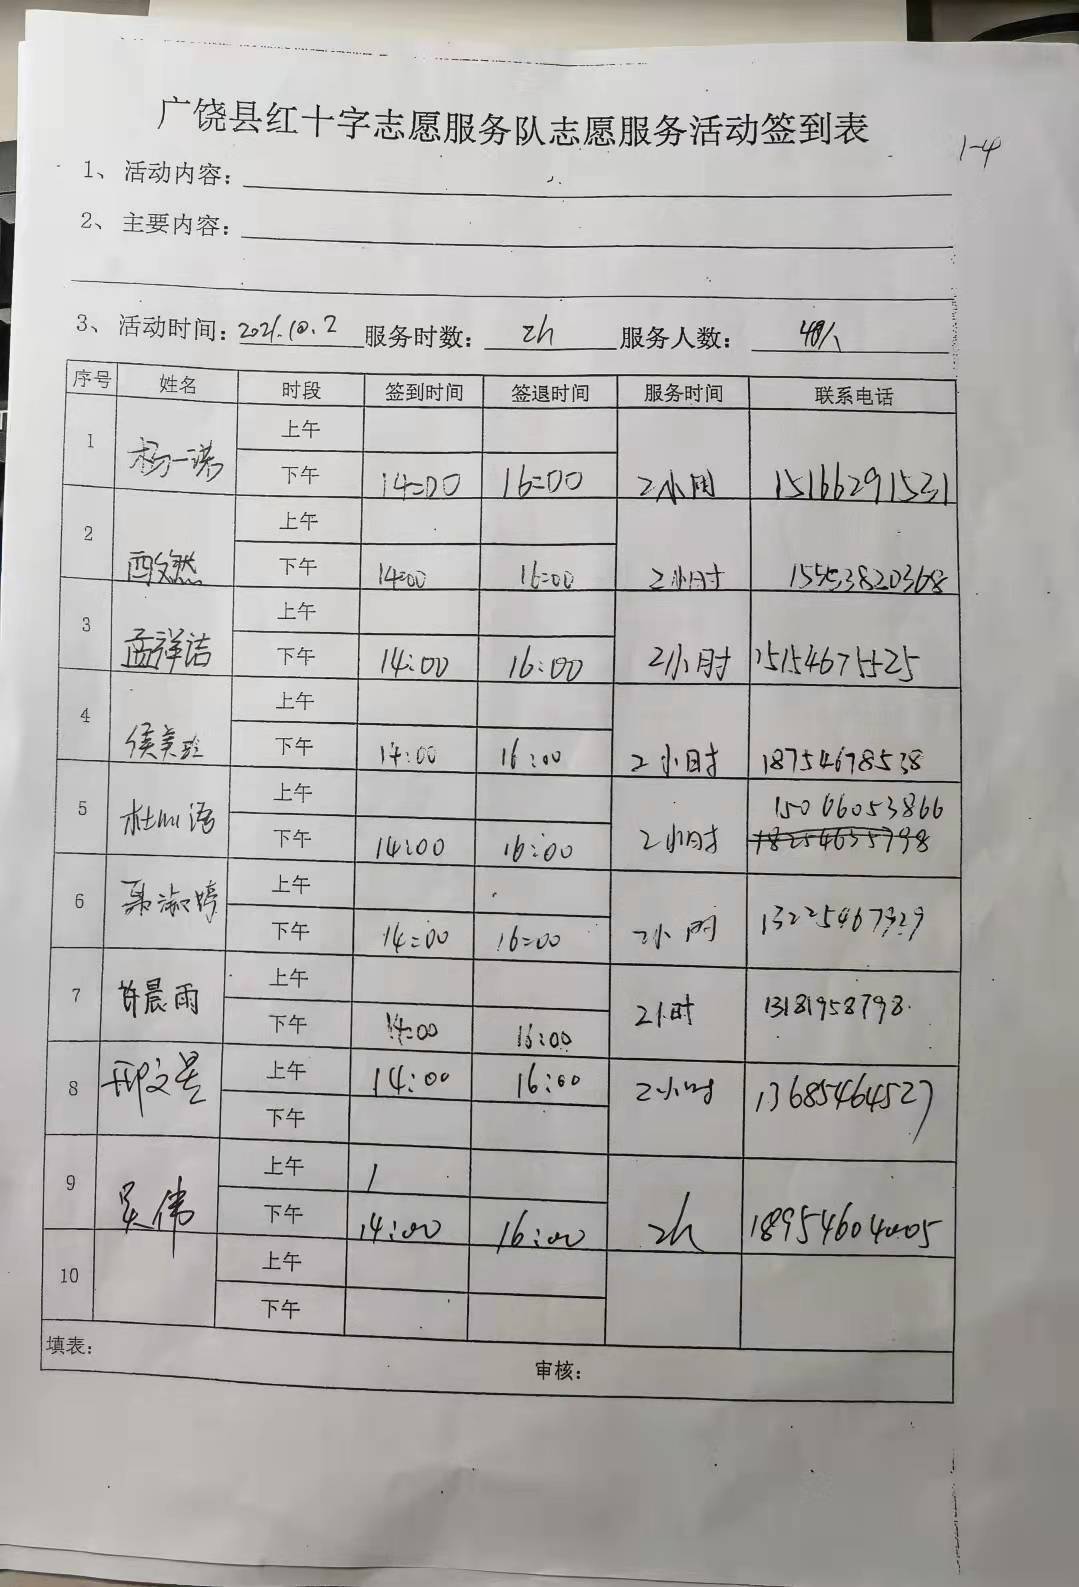 广饶县红十字志愿服务队志愿服务活动签到表
1-4
1、活动内容:
2、主要内容:
3、活动时间: 2021.10.2 服务时数: 2h 服务人数:
序号 姓名 时段 签到时间 签退时间 服务时间 联系电话
1 杨一诺 上午
下午 14:00 16:00 2小时 15166291531
2 上午
下午 14:00 16:00 2小时 15553820368
3 孟祥洁 上午
下午 14:00 16:00 2小时 15154675525
4 侯美玲 上午
下午 14:00 16:00 2小时 18754678538
5 上午 15066053866
下午 14:00 16:00 2小时 18254655798
6 聂淑婷 上午
下午 14:00 16:00 2小时 13225467929
7 晨雨 上午
下午 14:00 16:00 2小时 13181958798
8 邢文 上午 14:00 16:00 2小时 13685464527
下午
9 吴伟 上午
下午 14:00 16:00 2h 18954604005
10 上午
下午
填表:
审核: